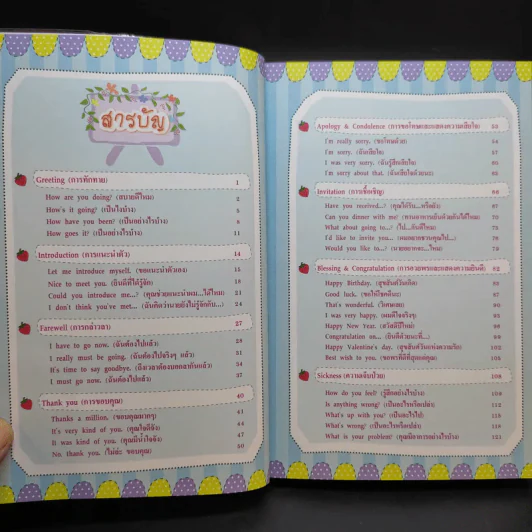 สารบัญ
Greeting (การทักทาย) 1
How are you doing? (สบายดีไหม) 2
How's it going? (เป็นไงบ้าง) 5
How have you been? (เป็นอย่างไรบ้าง) 8
How goes it? (เป็นอย่างไรบ้าง) 11
Introduction (การแนะนำตัว) 14
Let me introduce myself. (ขอแนะนำตัวเอง) 15
Nice to meet you. (ยินดีที่ได้รู้จัก) 18
Could you introduce me...? (คุณช่วยแนะนำผม...ได้ไหม) 21
I don't think you've met... (ฉันคิดว่านายยังไม่รู้จักกับ...) 24
Farewell (การกล่าวลา) 27
I have to go now. (ฉันต้องไปแล้ว) 28
I really must be going. (ฉันต้องไปจริงๆ แล้ว) 31
It's time to say goodbye. (ถึงเวลาต้องบอกลากันแล้ว) 34
I must go now. (ฉันต้องไปแล้ว) 37
Thank you (การขอบคุณ) 40
Thanks a million. (ขอบคุณมากๆ) 41
It's very kind of you. (คุณใจดีจัง) 44
It was kind of you. (คุณมีน้ำใจจัง) 47
No, thank you. (ไม่ล่ะ ขอบคุณ) 50
Apology & Condolence (การขอโทษและแสดงความเสียใจ) 53
I'm really sorry. (ขอโทษด้วย) 54
I'm sorry. (ฉันเสียใจ) 57
I was very sorry. (ฉันรู้สึกเสียใจ)
I'm sorry about that. (ฉันเสียใจด้วยนะ)
Invitation (การเชื้อเชิญ) 66
Have you received...? (คุณได้รับ...หรือยัง) 67
Can you dinner with me? 70
What about going to...? (ไป...กันดีไหม) 73
I'd like to invite you... 76
Would you like to...? 79
Blessing & Congratulation (การอวยพรและแสดงความยินดี) 82
Happy Birthday. (สุขสันต์วันเกิด)
Good luck. (ขอให้โชคดีนะ)
That's wonderful. (วิเศษเลย)
I was very happy. (ผมดีใจจริงๆ)
Happy New Year. (สวัสดีปีใหม่)
Congratulation on... (ยินดีด้วยนะที่...)
Happy Valentine's day. (สุขสันต์วันแห่งความรัก)
Best wish to you. (ขอพรที่ดีที่สุดแด่คุณ)
Sickness (ความเจ็บป่วย) 108
How do you feel? (รู้สึกอย่างไรบ้าง) 109
Is anything wrong? (เป็นอะไรหรือเปล่า) 112
What's up with you? (เป็นอะไรไป) 115
What's wrong? (เป็นอะไรหรือเปล่า) 118
What is your problem? (คุณมีอาการอย่างไรบ้าง) 121